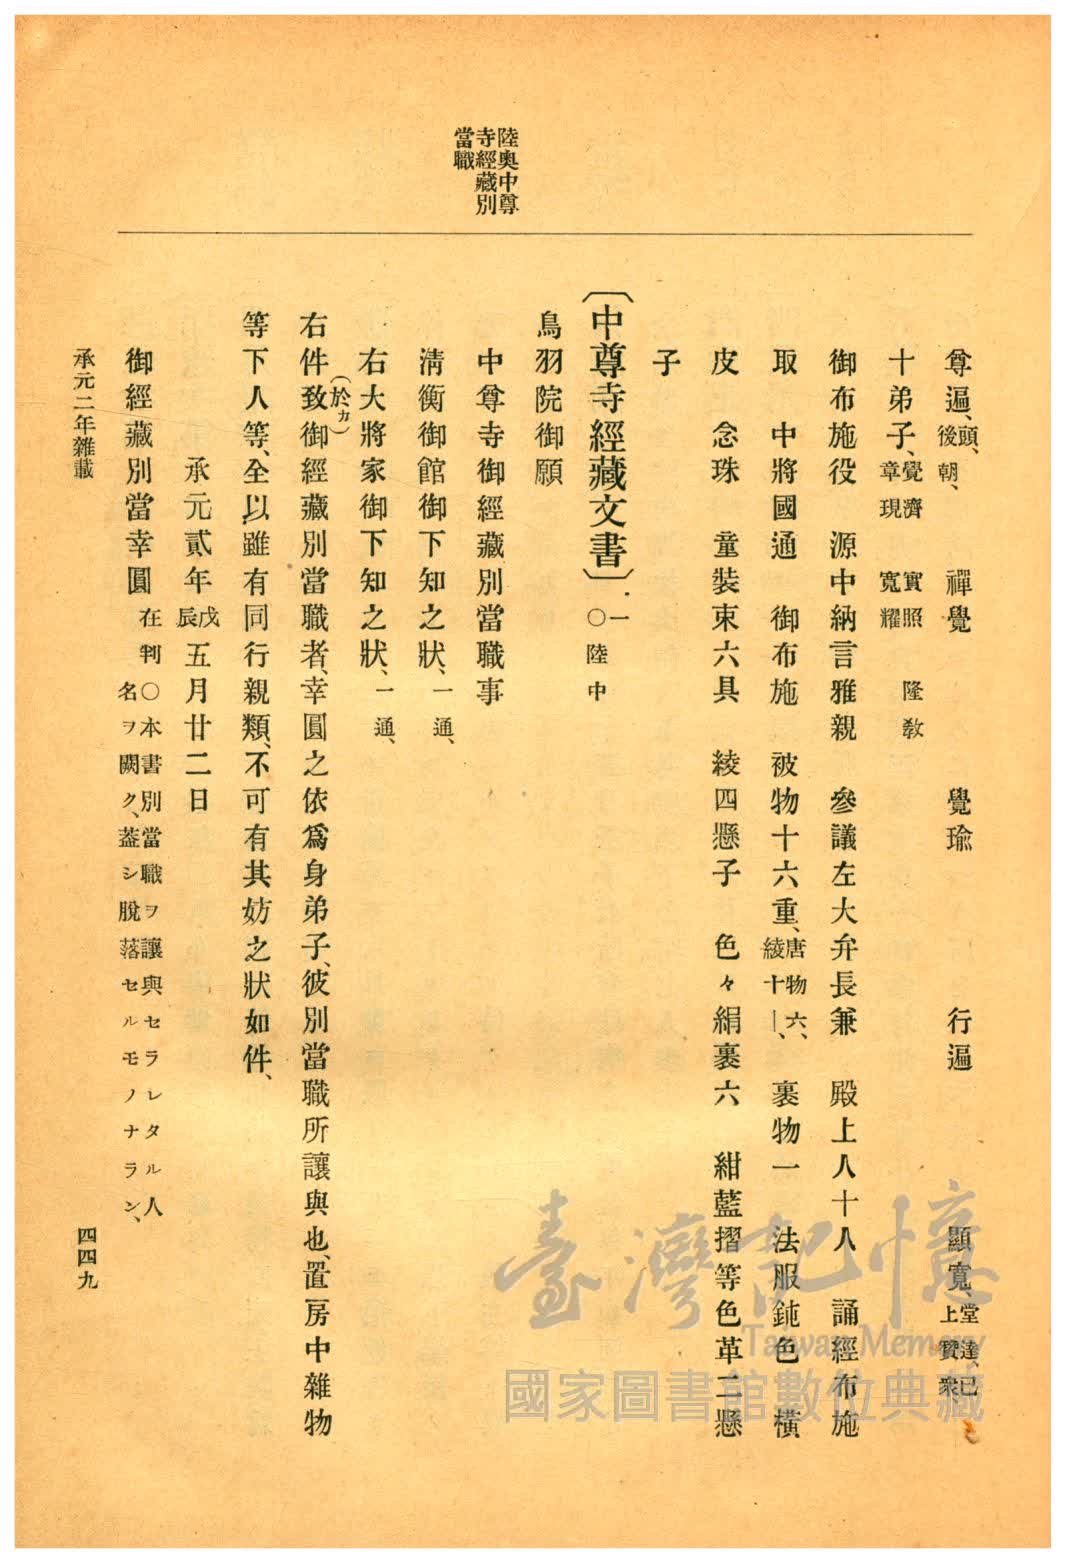 陸奧中尊
寺經藏別
當職
尊遍、頭、後朝、　禪覺　覺瑜　行遍　顯寬、堂達、已上寶衆
十弟子、覺濟　實照　隆敎　章現　寬耀
御布施役　源中納言雅親　參議左大弁長兼　殿上人十人　誦經布施
取　中將國通　御布施　被物十六重、唐物六、綾十―、　裹物一　法服鈍色　橫
皮　念珠　童裝束六具　綾四懸子　色々絹裹六　紺藍摺等色革二懸
子
〔中尊寺經藏文書〕一　○陸中
鳥羽院御願
中尊寺御經藏別當職事
淸衡御館御下知之狀、一通、
右大將家御下知之狀、一通、
右件致(於カ)御經藏別當職者、幸圓之依爲身弟子、彼別當職所讓與也、置房中雜物
等下人等、全以雖有同行親類、不可有其妨之狀如件、
承元貳年戊辰五月廿二日
御經藏別當幸圓在判　○本書別當職ヲ讓與セラレタル人名ヲ闕ク、蓋シ脫落セルモノナラン、
承元二年雜載
四四九
臺灣記憶
Taiwan Memory
國家圖書館數位典藏